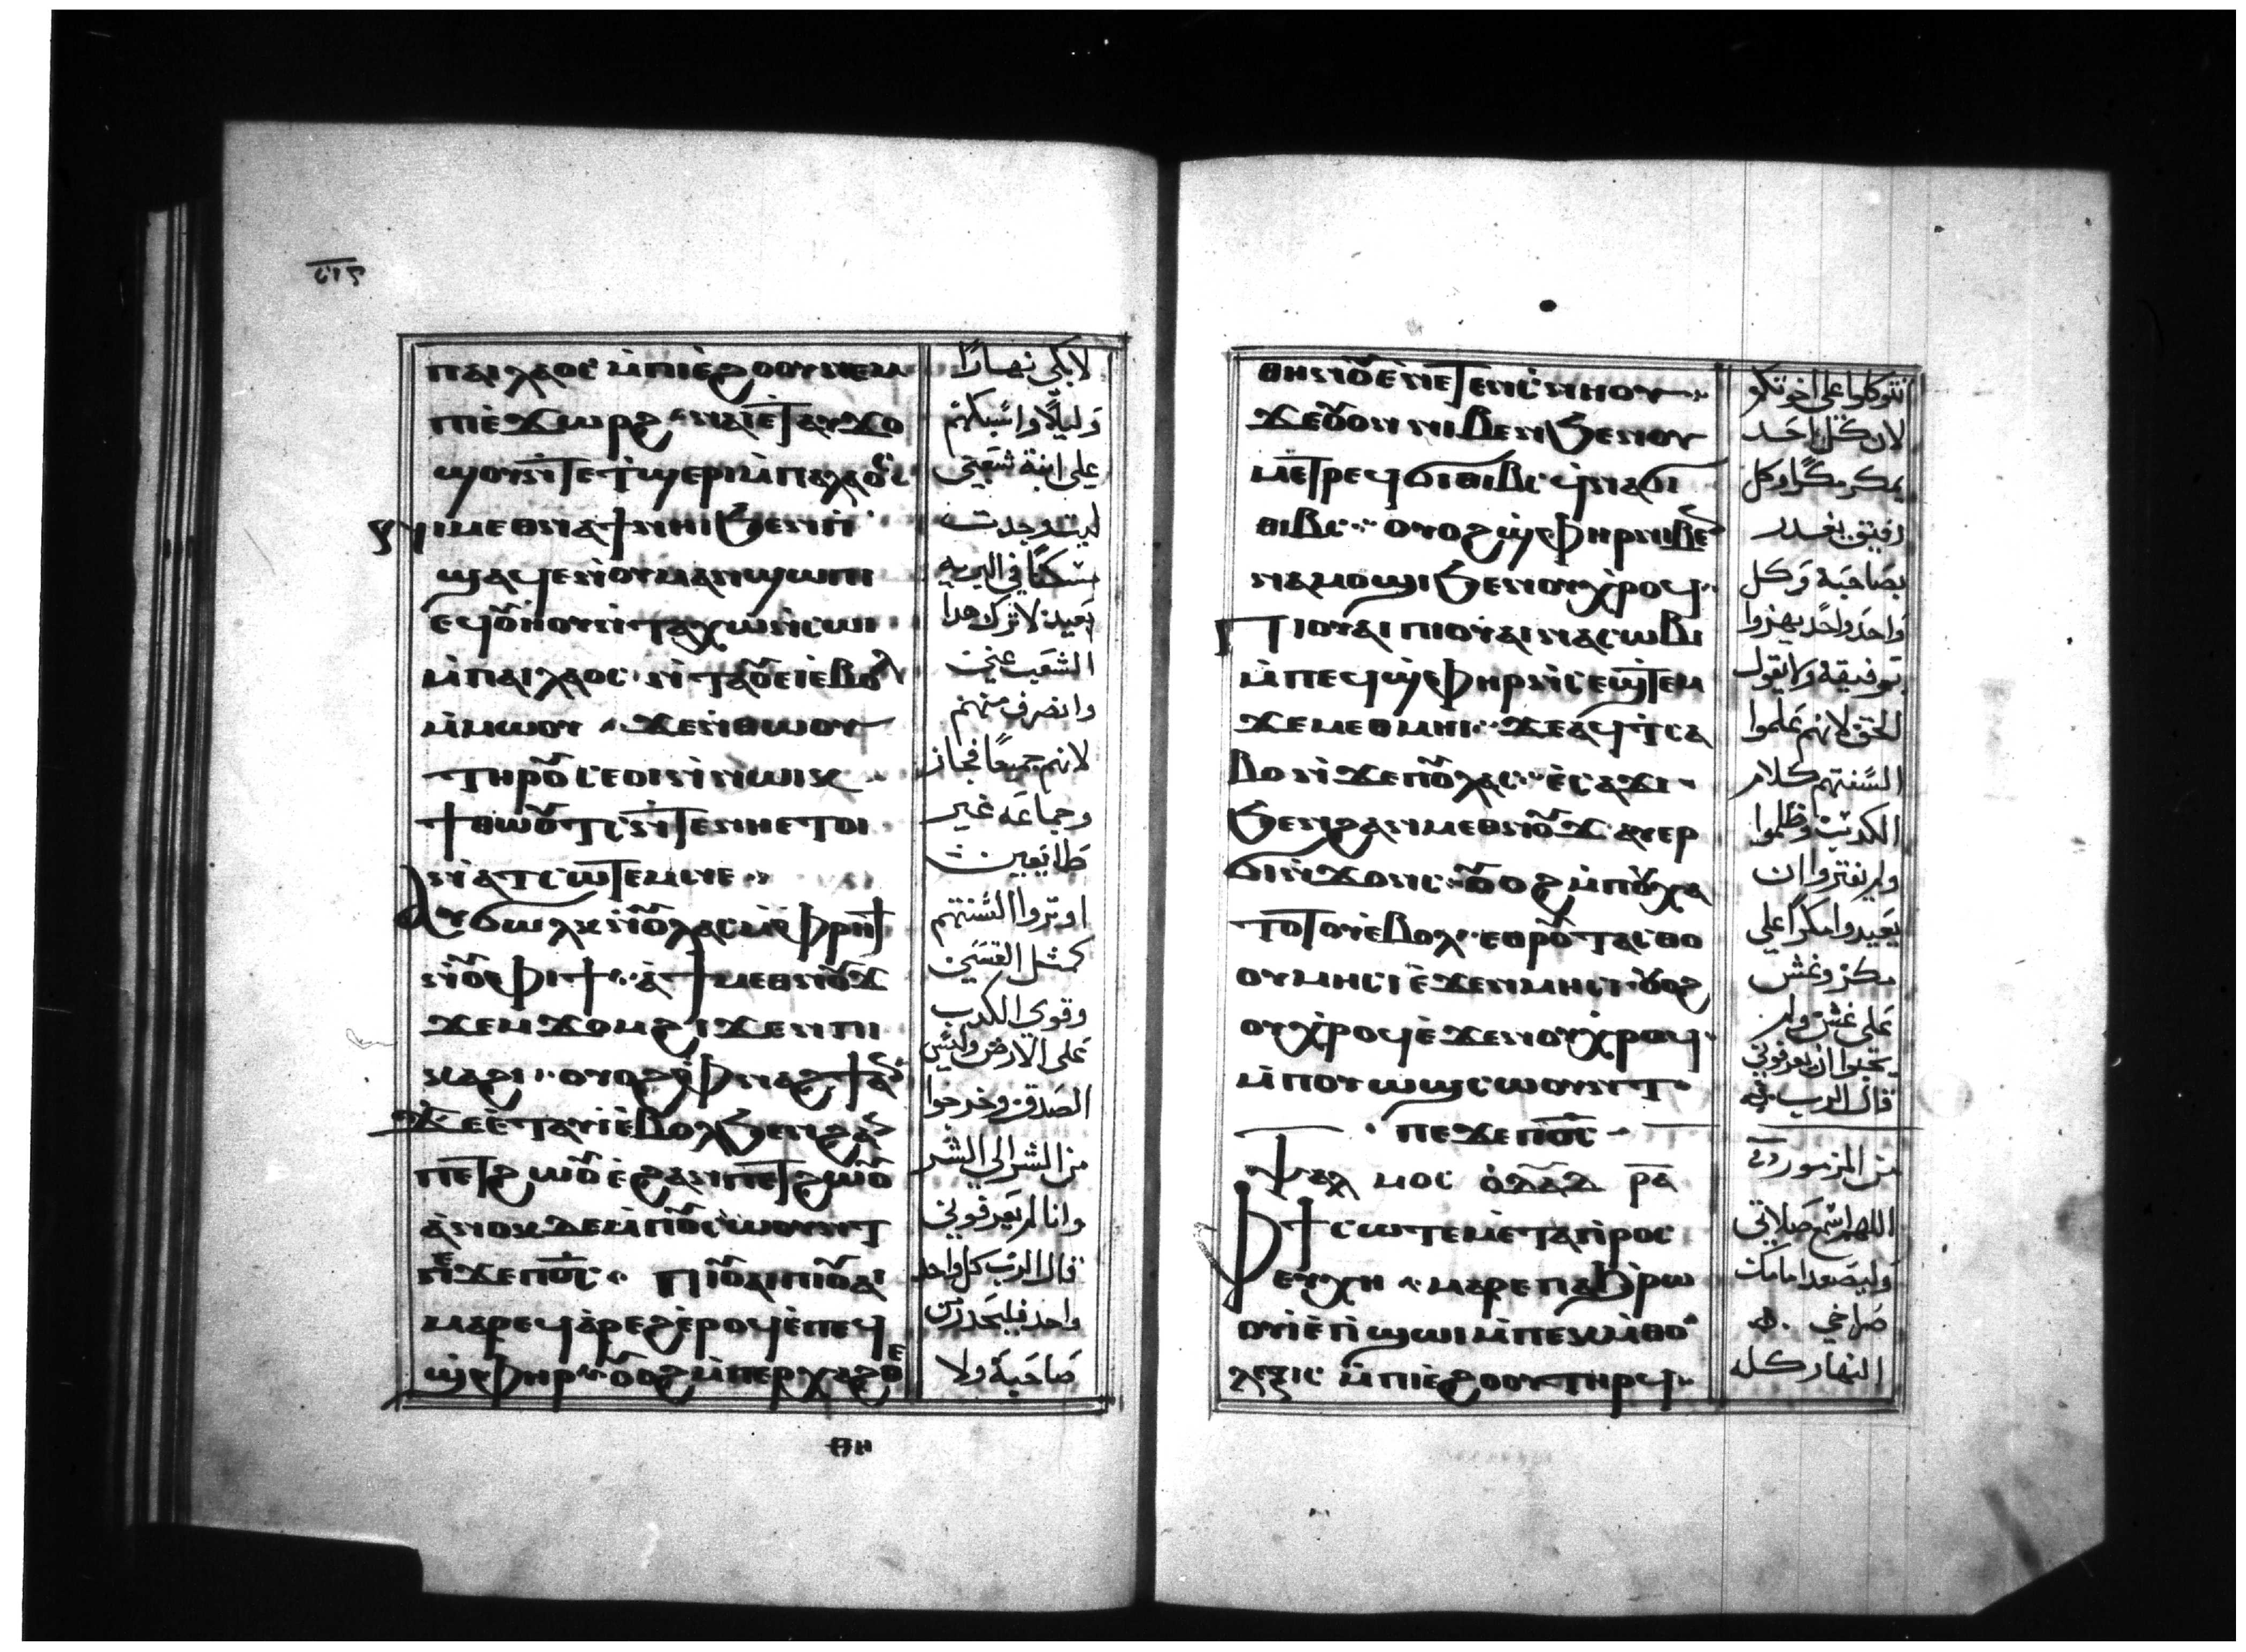 ⲡⲁⲓⲗⲁⲟⲥ ⲙ̇ⲡⲓⲉ̇ϩⲟⲟⲩ ⲛⲉⲙ
ⲡⲓⲉ̇ϫⲱⲣϩ
ϣⲟⲩⲛ̇ⲧⲉ ⲧ̇ϣⲉⲣⲓ ⲙ̇ⲡⲁⲗⲁⲟⲥ
ⲛⲓⲙ ⲉⲑⲛⲁϯ ⲛⲏⲓ ϧⲉⲛ ⲡⲓ
ϣⲁϥⲉ ⲛ̇ⲟⲩⲙⲁⲛϣⲱⲡⲓ
ⲉϥⲟⲩⲏⲟⲩ ⲛ̇ⲧⲁⲭⲱ ⲛ̇ⲥⲱⲓ
ⲙ̇ⲡⲁⲓⲗⲁⲟⲥ ⲛ̇ⲧⲁⲟⲩⲉⲓ ⲉ̇ⲃⲟⲗ
ⲙ̇ⲙⲱⲟⲩ ϫⲉ ⲛ̇ⲑⲱⲟⲩ
ⲧⲏⲣⲟⲩ ⲥⲉⲟⲓ ⲛ̇ⲛⲱⲓⲕ
ϯⲑⲱⲟⲩⲧⲥ ⲛ̇ⲧⲉ ⲛⲏ ⲉⲧⲟⲓ
ⲛ̇ⲁⲧⲥⲱⲧⲉⲙ
ⲁⲩϭⲱⲗⲕ ⲙ̇ⲡⲟⲩⲗⲁⲥ ⲙ̇ⲫⲣⲏϯ
ⲛ̇ⲟⲩⲫⲓϯ ⲁ̇ ϯⲙⲉⲑⲛⲟⲩϫ
ϫⲉⲙϫⲟⲙ ϩⲓϫⲉⲛ ⲡⲓ
ⲕⲁϩⲓ ⲟⲩⲟϩ ⲫⲛⲁϩϯ ⲁⲛ
ϫⲉ ⲉ̇ⲧⲁⲩⲓ̇ ⲉ̇ⲃⲟⲗ ϧⲉⲛ ϩⲁⲛ
ⲡⲉⲧϩⲱⲟⲩ ⲉ̇ϩⲁⲛⲡⲉⲧϩⲱⲟⲩ
ⲁ̇ⲛⲟⲕ ⲇⲉ ⲙ̇ⲡⲟⲩⲥⲱⲟⲩⲛⲧ
ⲡⲉϫⲉ ⲡ⳪ ⲡⲓⲟⲩⲁⲓ ⲡⲓⲟⲩⲁⲓ
ⲙⲁⲣⲉϥⲁ̇ⲣⲉϩ ⲉ̇ⲣⲟϥ ⲉ̇ⲡⲉϥ
ϣ̇ⲫⲏⲣ ⲟⲩⲟϩ ⲙ̇ⲡⲉⲣⲭⲁϩⲑⲉ
ⲡⲏ
لابكي نهارًا
وليلًا
على ابنة شعبي
مسكنًا في البريه
بعيده لاترك هدا
الشعب عني
وانصرف منهم
لانهم جميعًا فجار
وجماعه غير
طايعين
اوتروا السنتهم
كمثل القسي
وقوي الكدب
على الارض وليس
الصدق وخرجوا
من الشر الي الشر
وانا لم يعرفوني
قال الرب كل واحد
واحد فليحدر من
صاحبه ولا
ⲑⲏⲛⲟⲩ ⲉ̇ⲛⲉⲧⲉⲛⲥ̇ⲛⲏⲟⲩ
ϫⲉ ⲟⲩⲟⲛ ⲛⲓⲃⲉⲛ ϧⲉⲛ ⲟⲩ
ⲙⲉⲧⲣⲉϥϭⲓⲑⲓⲃⲥ ϥ̇ⲛⲁϭⲓ
ⲑⲓⲃⲥ ⲟⲩⲟϩ ϣ̇ⲫⲏⲣ ⲛⲓⲃⲉⲛ
ⲛⲁⲙⲟϣⲓ ϧⲉⲛ ⲟⲩⲭ̇ⲣⲟϥ
ⲡⲓⲟⲩⲁⲓ ⲡⲓⲟⲩⲁⲓ ⲛⲁⲥⲱⲃⲓ
ⲙ̇ⲡⲉϥϣ̇ⲫⲏⲣ ⲛ̇ⲥⲉϣ̇ⲧⲉⲙ
ϫⲉ ⲙⲉⲑⲙⲏⲓ ϫⲉ ⲁϥⲧ̇ⲥⲁ
ⲃⲟ ⲛ̇ϫⲉ ⲡⲟⲩⲗⲁⲥ ⲉ̇ⲥⲁϫⲓ
ϧⲉⲛ ϩⲁⲛⲙⲉⲑⲛⲟⲩϫ ⲁⲩⲉⲣ
ϭⲓⲛ̇ϫⲟⲛⲥ ⲟⲩⲟϩ ⲙ̇ⲡⲟⲩⲭⲁ
ⲧⲟⲧⲟⲩ ⲉ̇ⲃⲟⲗ ⲉⲑⲣⲟⲩⲧⲁⲥⲑⲟ
ⲟⲩⲙⲏⲥⲓ ⲉ̇ϫⲉⲛ ⲙⲏⲥⲓ ⲟⲩⲟϩ
ⲟⲩⲭ̇ⲣⲟϥ ⲉ̇ϫⲉⲛ ⲟⲩⲭ̇ⲣⲟϥ
ⲙ̇ⲡⲟⲩⲱϣ ⲥⲱⲟⲩⲛⲧ
ⲡⲉϫⲉ ⲡ⳪
ⲯⲁⲗⲙⲟⲥ ⲇ̅ⲁ̅ⲇ̅ ⲣ̅ⲁ̅
ⲫϯ ⲥⲱⲧⲉⲙ ⲉ̇ⲧⲁⲡⲣⲟⲥ
ⲉⲩⲭⲏ ⲙⲁⲣⲉ ⲡⲁϧⲣⲱ
ⲟⲩ ⲓ̇ ⲉ̇ⲡ̇ϣⲱⲓ ⲙ̇ⲡⲉⲕⲙ̇ⲑⲟ
ⲗⲉⲝⲓⲥ ⲙ̇ⲡⲓⲉ̇ϩⲟⲟⲩ ⲧⲏⲣϥ
تتوكلوا على اخوتكم
لان كل احد
يمكر مكرًا وكل
رفيق يغدر
بصاحبه وكل
واحد واحد يهزوا
برفيقه ولا يقول
الحق لانهم علموا
السنتهم كلام
الكدب وظلموا
ولم يفتروا ان
يعيدوا مكرًا على
مكر وغش
على غش ولم
قال الرب
من المزمور
اللهم اسمع صلاتي
وليصعد امامك
صراخي
النهار كله